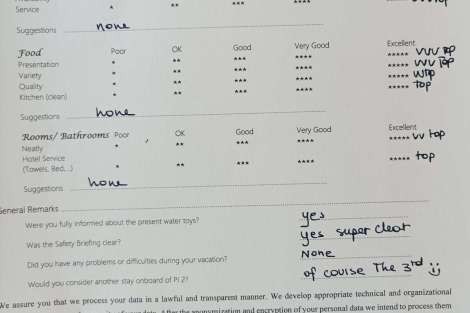 Service * ** *** ****
Suggestions none
Food Poor OK Good Very Good Excellent
Presentation * ** *** **** ***** VVV top
Variety * ** *** **** ***** VVV top
Quality * ** *** **** ***** VV top
Kitchen (clean) * ** *** **** ***** top
Suggestions none
Rooms/ Bathrooms Poor OK Good Very Good Excellent
Neatly * ** *** **** ***** VV top
Hotel Service
(Towels, Bed,..) * ** *** **** ***** top
Suggestions none
General Remarks
Were you fully informed about the present water toys? yes
Was the Safety Briefing clear? yes super clear
Did you have any problems or difficulties during your vacation? None
Would you consider another stay onboard of Pi 2? of course The 3rd
We assure you that we process your data in a lawful and transparent manner. We develop appropriate technical and organizational
After the anonymization and encryption of your personal data we intend to process them